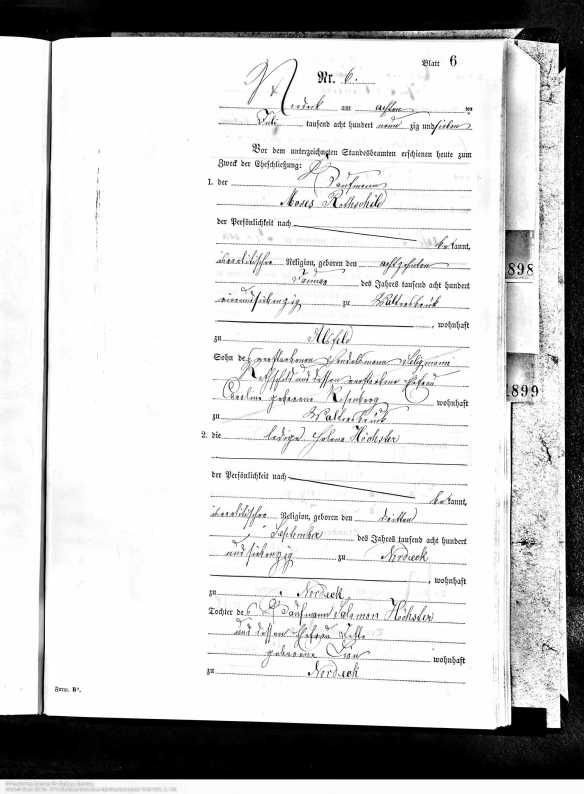 Blatt 6
Nr. 6.
Nordeck am achten
Juli tausend acht hundert neun zig und sieben
Vor dem unterzeichneten Standesbeamten erschienen heute zum
Zweck der Eheschließung:
1. der Kaufmann
Moses Rothschild
der Persönlichkeit nach
be kannt,
israelitischer Religion, geboren den achtzehnten
Januar des Jahres tausend acht hundert
und siebenzig zu
, wohnhaft
zu Alsfeld
Sohn des verstorbenen Handelsmann Seligmann
Rothschild und dessen verstorbene Ehefrau
geborene Rosenberg wohnhaft
zu
2. die ledige Helene Höchster
der Persönlichkeit nach
be kannt,
israelitischer Religion, geboren den dritten
September des Jahres tausend acht hundert
und siebenzig zu Nordeck
, wohnhaft
zu Nordeck
Tochter des Kaufmann Salomon Höchster
und dessen Ehefrau
geborene wohnhaft
zu Nordeck
Form. B¹.
1898
1899